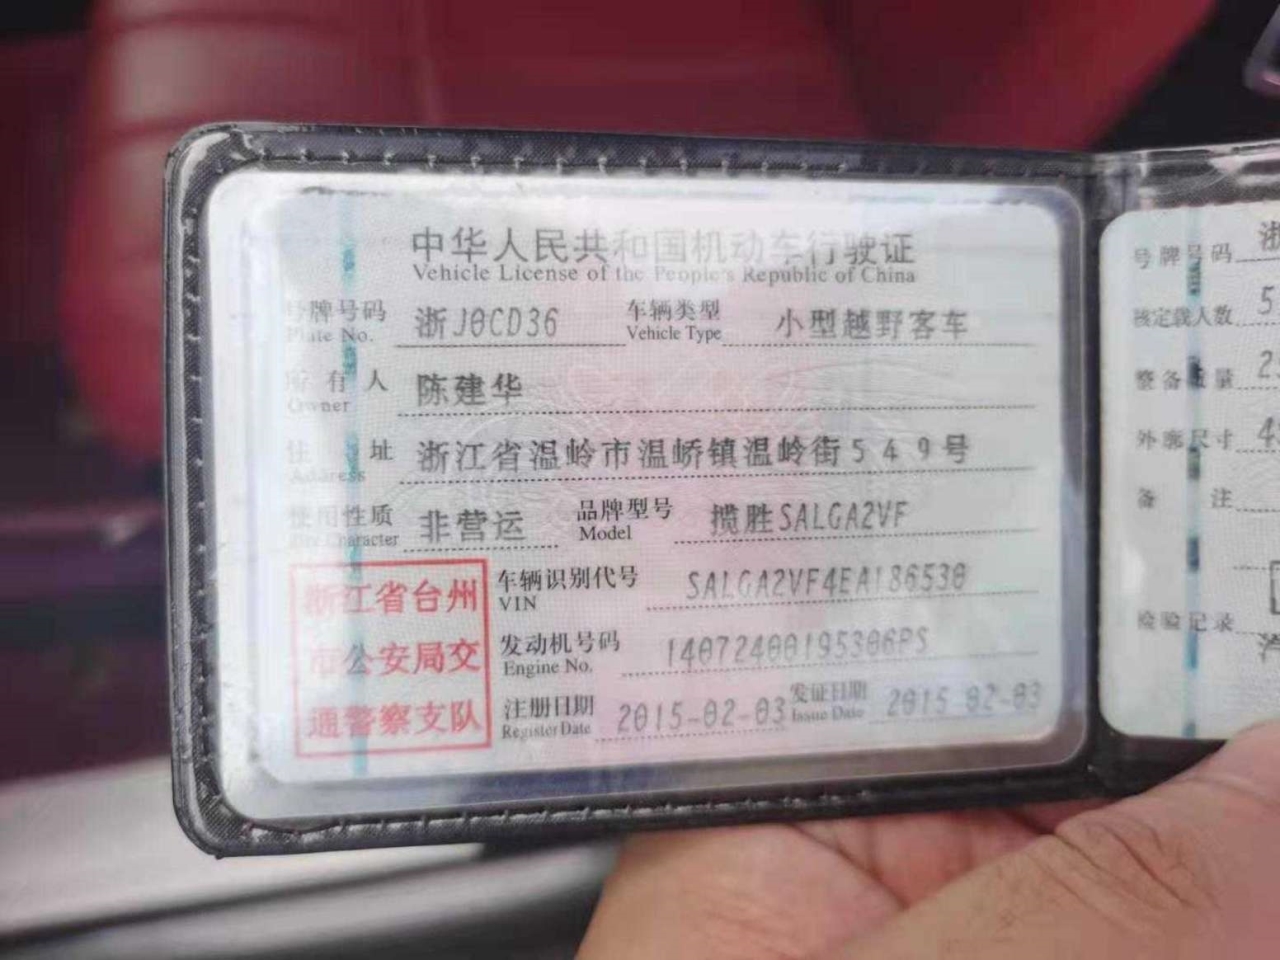 中华人民共和国机动车行驶证
Vehicle License of the People's Republic of China
号牌号码 浙J0CD36 车辆类型 小型越野客车
Plate No. Vehicle Type
所有人 陈建华
Owner
住址 浙江省温岭市温峤镇温岭街549号
Address
使用性质 非营运 品牌型号 揽胜SALGA2VF
Use Character Model
浙江省台州
市公安局交
通警察支队
车辆识别代号 SALGA2VF4EA186530
VIN
发动机号码 14072400195306PS
Engine No.
注册日期 2015-02-03 发证日期 2015-02-03
Register Date Issue Date
号牌号码 浙
核定载人数 5
整备质量 2
外廓尺寸 4
备注
检验记录